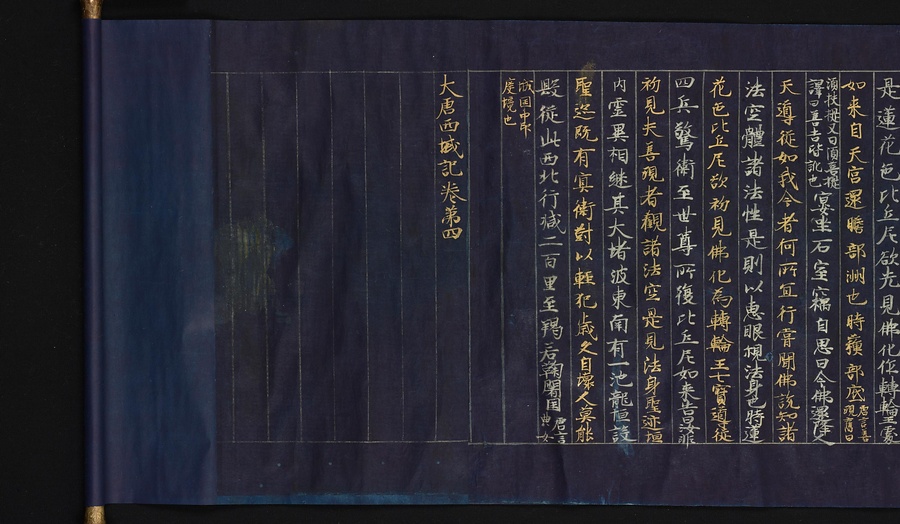 是蓮花色比丘尼欲先見佛化作轉輪王處
如来自天宮還贍部洲也時蘇部底唐言善現舊曰
須扶提又曰須菩提譯曰善吉皆訛也宴坐石室竊自思曰今佛還降人
天導從如我今者何所宜行嘗聞佛說知諸
法空體諸法性是則以惠眼觀法身也時蓮
花色比丘尼欲初見佛化為轉輪王七寶導從
四兵警衛至世尊所復比丘尼如来告汝非
初見夫善現者觀諸法空是見法身聖迹垣
内靈異相継其大堵波東南有一池龍恒護
聖迹既有冥衛對以輕犯歳久自壞人莫能
毀從此西北行減二百里至羯若鞠闍国唐言曲女
城国中印度境也
大唐西域記卷第四